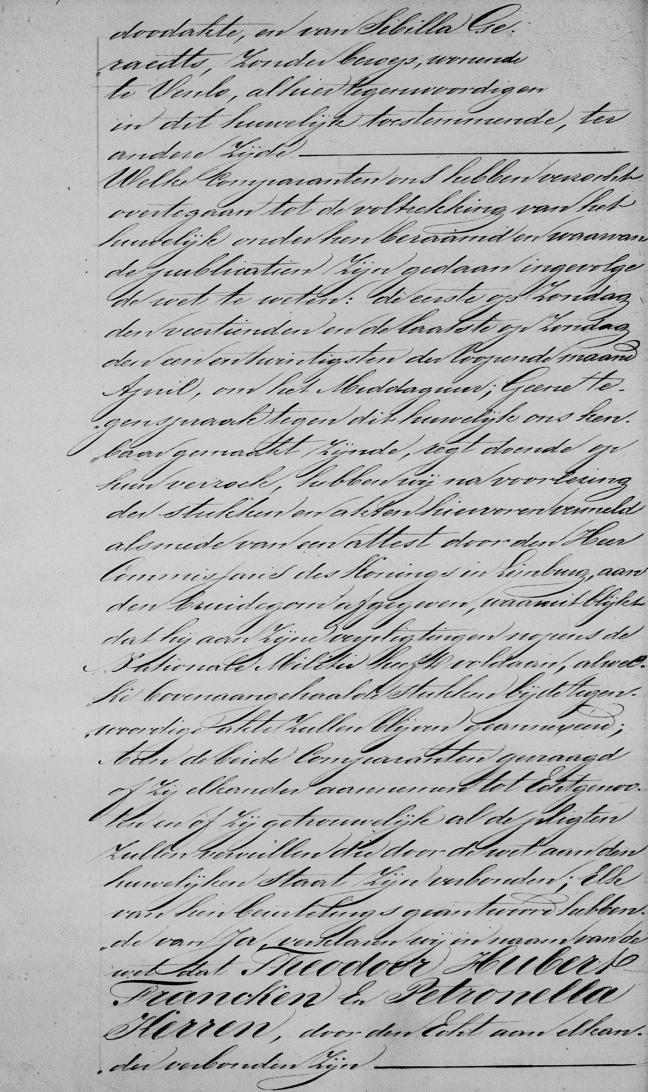 doodakte, en van Sibilla Ge-
raedts, Zonder beroep, wonende
te Venlo, alhier tegenwoordig en
in dit huwelijk toestemmende, ter
andere Zijde.
Welke Comparanten ons hebben verzocht
overtegaan tot de voltrekking van het
huwelijk onder hen beraamd en waarvan
de publicatien Zijn gedaan ingevolge
de wet te weten: de eerste op Zondag
den veertienden en de laatste op Zondag
den een en twintigsten der loopende maand
April, om het Middaguur; Geene te-
genspraak tegen dit huwelijk ons ken-
baar gemaakt Zijnde, regt doende op
hun verzoek, hebben wij na voorlezing
der stukken en akten hiervoren vermeld
alsmede van een attest door den Heer
Commissaris des Konings in Limburg, aan
den bruidegom afgegeven, waaruit blijkt
dat hij aan Zijne verpligtingen nopens de
Nationale Militie heeft voldaan, alwel-
ke bovenaangehaalde stukken bij de tegen-
woordige akte Zullen blijven geannexeerd;
Aan de beide Comparanten gevraagd
of Zij elkander aannemen tot Echtgenoo-
ten en of Zij getrouwelijk al de pligten
Zullen vervullen die door de wet aan den
huwelijken Staat Zijn verbonden; Elk
van hen beurtelings geantwoord hebben-
de van Ja, verklaren wij in naam van de
wet dat Theodoor Hubert
Francken En Petronella
Herren, door den Echt aan elkan-
der verbonden Zijn